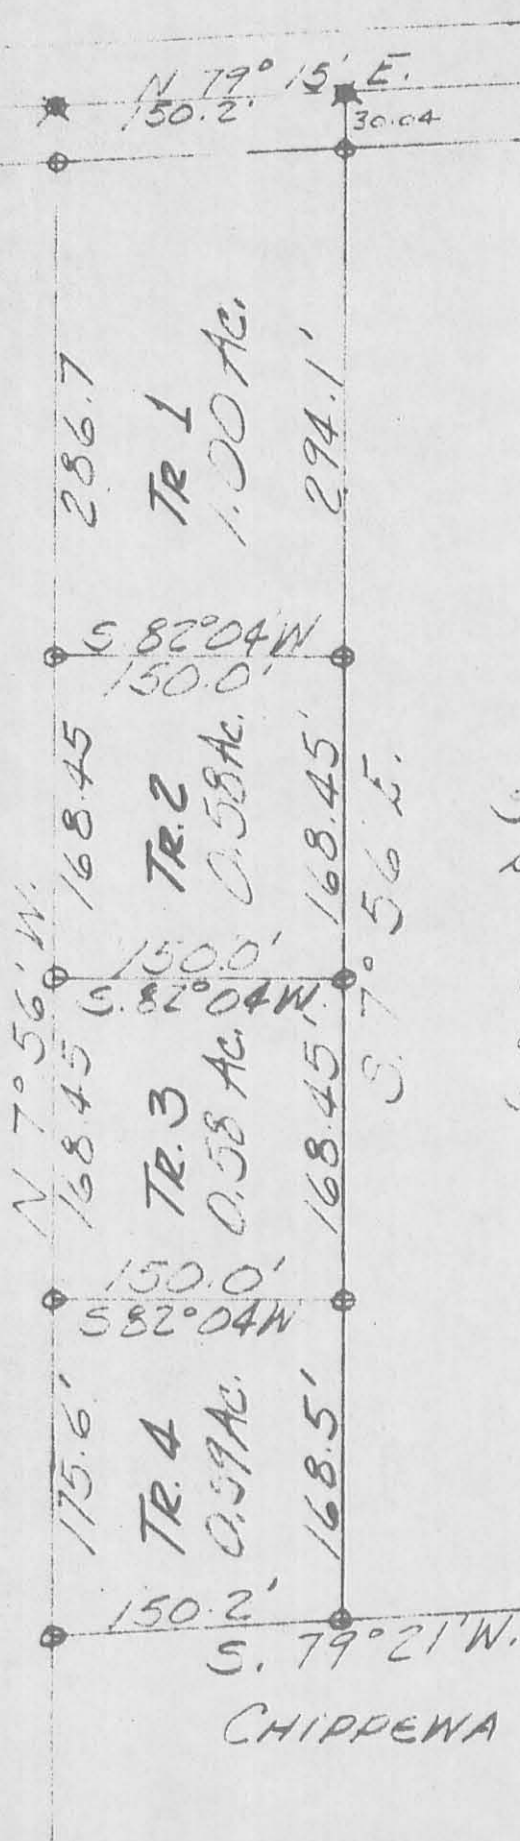 N 79° 15' E.
150.2'
30.04
286.7
Tr 1
1.00 Ac.
294.1'
S 82°04'W
150.0'
168.45
Tr. 2
0.58 Ac.
168.45'
S. 7° 56' E.
150.0'
S. 82°04'W.
N 7° 56' W.
168.45
Tr. 3
0.58 Ac.
168.45'
150.0'
S 82°04'W
175.6'
Tr. 4
0.59 Ac.
168.5'
150.2'
S. 79°21'W.
CHIPPEWA